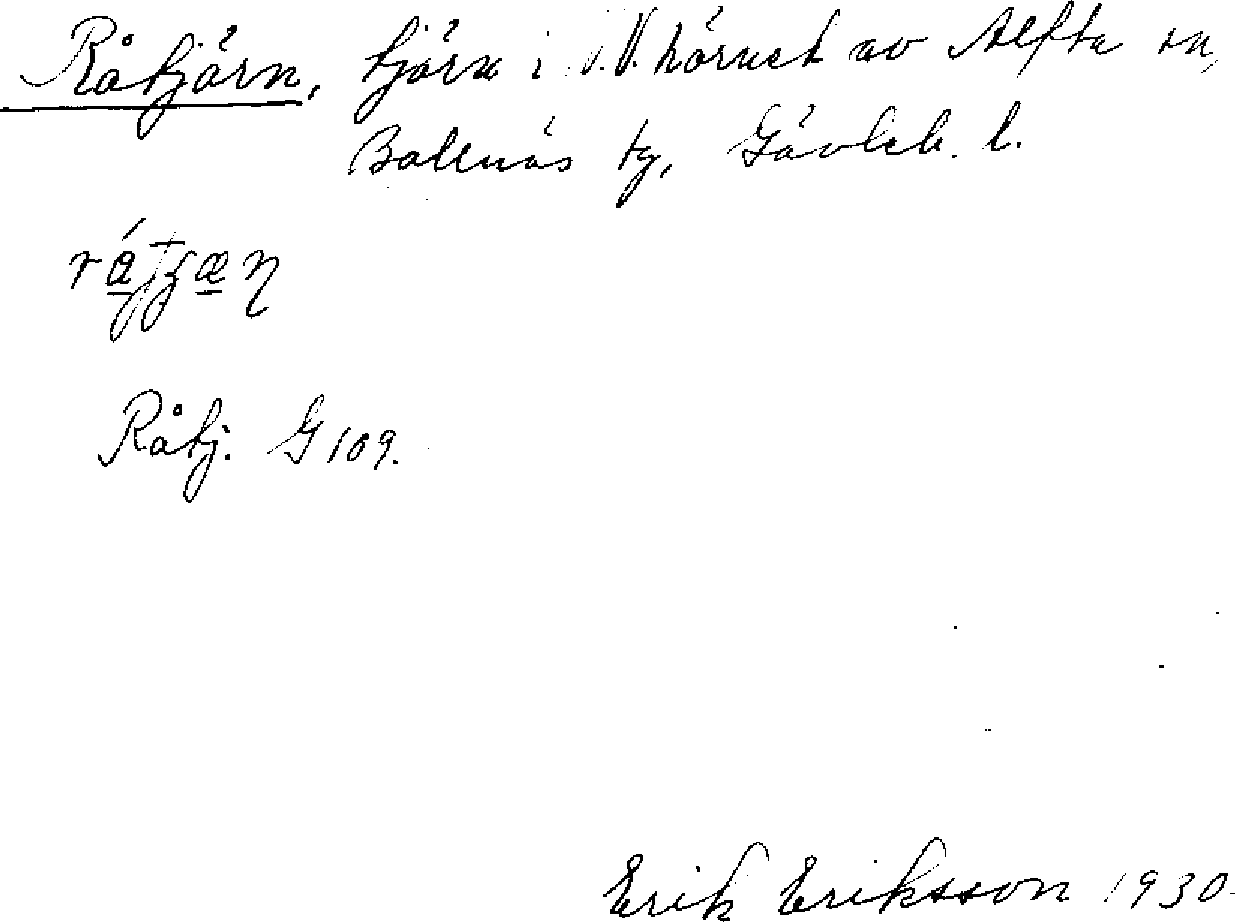 Råtjärn, tjärn i N.V. hörnet av Alfta sn,
Bollnäs tg, Gävleb. l.
Råtj. G 109.
Erik Eriksson 1930